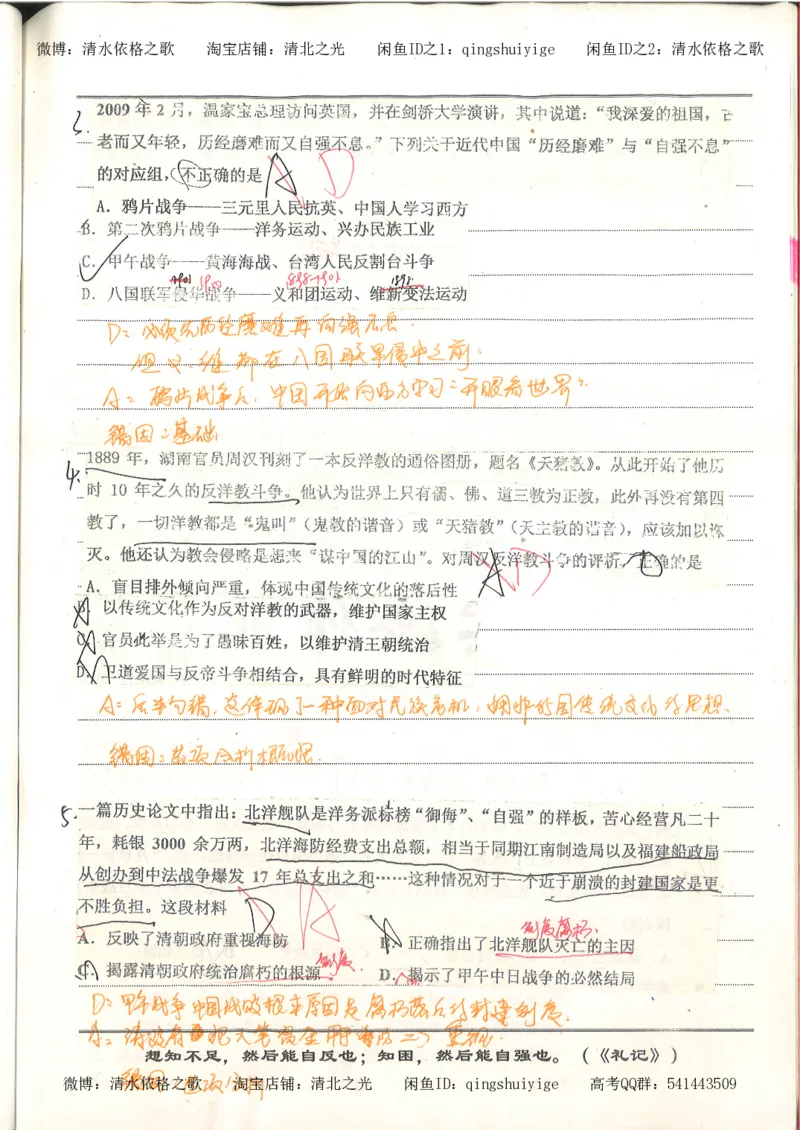 微博：清水依格之歌 淘宝店铺：清北之光 闲鱼ID之1：qingshuiyige 闲鱼ID之2：清水依格之歌
3. 2009 年 2 月，温家宝总理访问英国，并在剑桥大学演讲，其中说道：“我深爱的祖国，古
老而又年轻，历经磨难而又自强不息。”下列关于近代中国“历经磨难”与“自强不息”
的对应组，不正确的是 A D
A．鸦片战争——三元里人民抗英、中国人学习西方
B．第二次鸦片战争——洋务运动、兴办民族工业
C．甲午战争——黄海海战、台湾人民反割台斗争
1900 1898-1901 1898
D．八国联军侵华战争——义和团运动、维新变法运动
D：必须先历经磨难再自强不息．
但义、维都在八国联军侵华之前．
A：鸦片战争后，中国开始向西方学习“开眼看世界”．
错因：基础
4. 1889 年，湖南官员周汉刊刻了一本反洋教的通俗图册，题名《天猪教》。从此开始了他历
时 10 年之久的反洋教斗争。他认为世界上只有儒、佛、道三教为正教，此外再没有第四
教了，一切洋教都是“鬼叫”（鬼教的谐音）或“天猪教”（天主教的谐音），应该加以诛
灭。他还认为教会侵略是想来“谋中国的江山”。对周汉反洋教斗争的评析，正确的是 A D
A．盲目排外倾向严重，体现中国传统文化的落后性
B．以传统文化作为反对洋教的武器，维护国家主权
C．官员此举是为了愚昧百姓，以维护清王朝统治
D．卫道爱国与反帝斗争相结合，具有鲜明的时代特征
A：后半句错．这体现了一种面对民族危机，捍卫中国传统文化的思想．
错因：选项分析
5. 一篇历史论文中指出：北洋舰队是洋务派标榜“御侮”、“自强”的样板，苦心经营凡二十
年，耗银 3000 余万两，北洋海防经费支出总额，相当于同期江南制造局以及福建船政局
从创办到中法战争爆发 17 年总支出之和……这种情况对于一个近于崩溃的封建国家是更
不胜负担。这段材料 D A
制度腐朽．
A．反映了清朝政府重视海防 B．正确指出了北洋舰队灭亡的主因
制度．
C．揭露清朝政府统治腐朽的根源 D．揭示了甲午中日战争的必然结局
D：甲午战争中国战败根本原因是腐朽落后的封建制度．
A：清政府把大笔资金用海防 => 重视．
想知不足，然后能自反也；知困，然后能自强也。（《礼记》）
错因：选项分析
微博：清水依格之歌 淘宝店铺：清北之光 闲鱼ID：qingshuiyige 高考QQ群：541443509